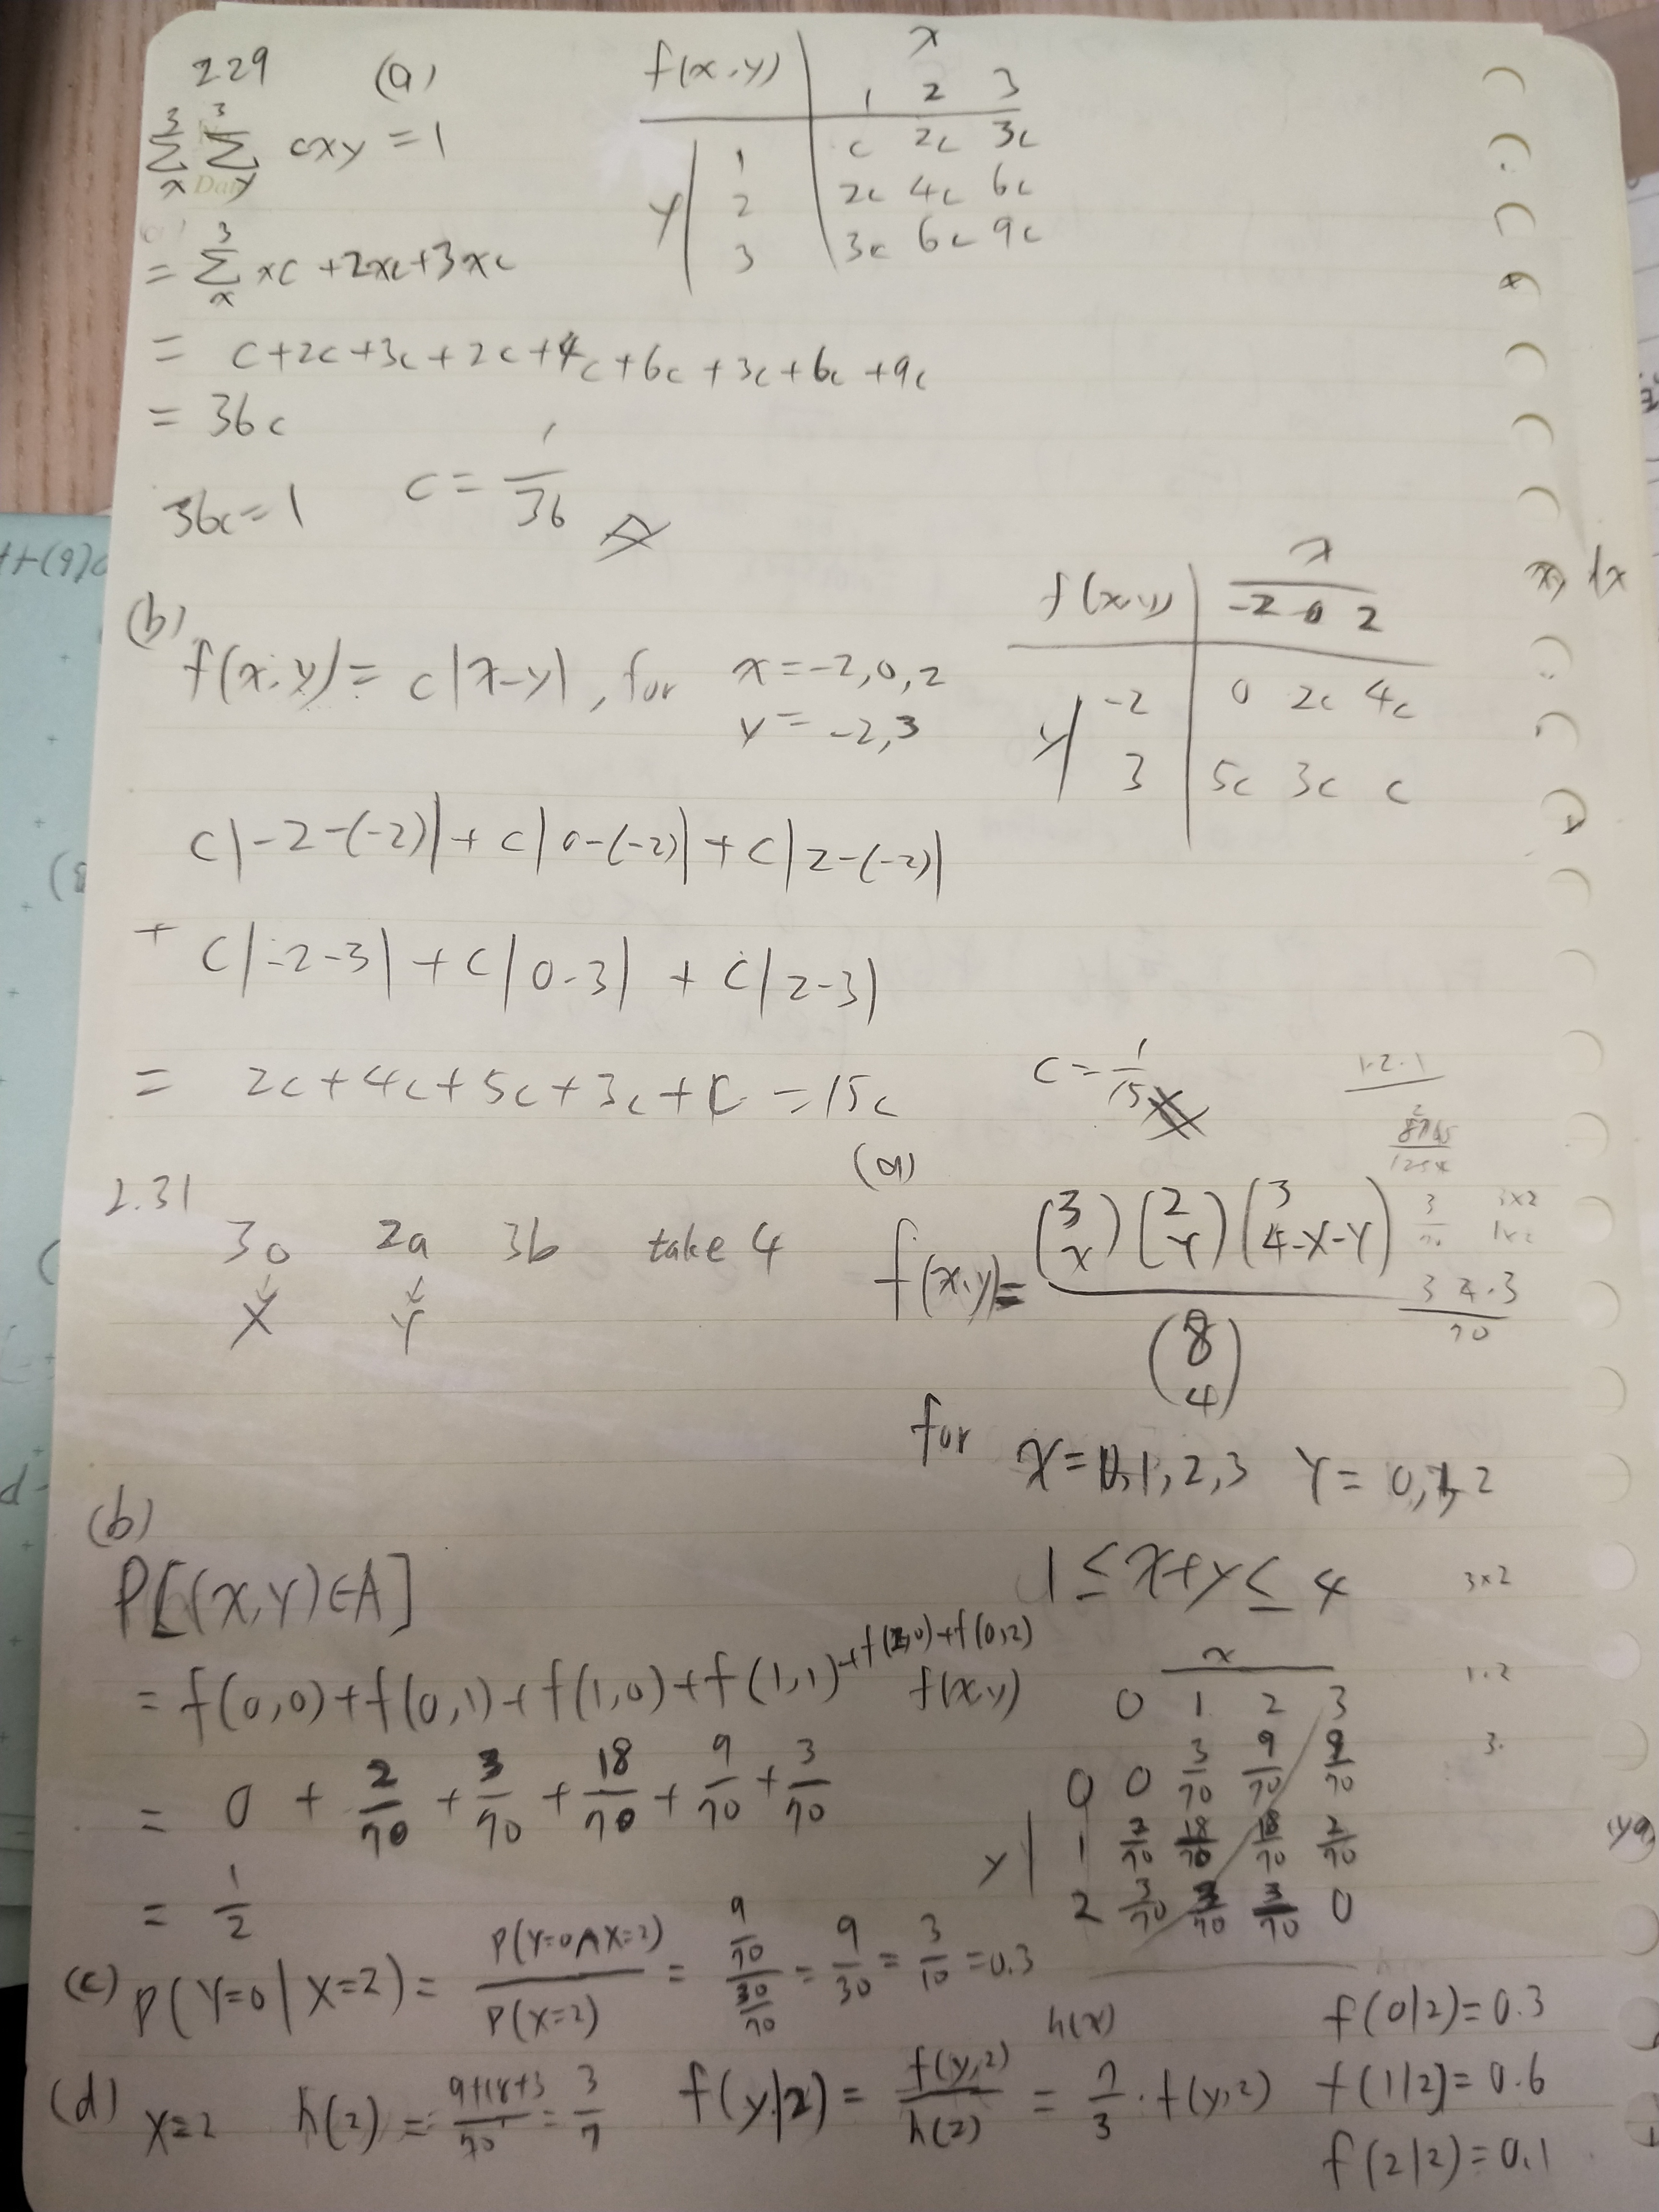 229 (a)
3 3
Σ Σ cxy = 1
x y
f(x,y) x
1 2 3
1 c 2c 3c
y 2 2c 4c 6c
3 3c 6c 9c
3
= Σ xc + 2xc + 3xc
x
= c+2c+3c+2c+4c+6c+3c+6c+9c
= 36c
36c=1 c = 1/36
(b)
f(x,y) = c|x-y|, for x=-2,0,2
y = -2,3
f(x,y) x
-2 0 2
y -2 0 2c 4c
3 5c 3c c
c|-2-(-2)| + c|0-(-2)| + c|2-(-2)|
+ c|-2-3| + c|0-3| + c|2-3|
= 2c+4c+5c+3c+c = 15c c = 1/15
2.31
3o 2a 3b take 4
↓ ↓
X Y
(a)
f(x,y) = (3 x)(2 Y)(3 4-X-Y) / (8 4)
for X=0,1,2,3 Y=0,1,2
1 ≤ x+y ≤ 4
(b)
P[(X,Y)∈A]
= f(0,0)+f(0,1)+f(1,0)+f(1,1)+f(2,0)+f(0,2)
= 0 + 2/70 + 3/70 + 18/70 + 9/70 + 3/70
= 1/2
f(x,y) x
0 1 2 3
0 0 3/70 9/70 3/70
y 1 2/70 18/70 18/70 2/70
2 3/70 9/70 3/70 0
h(x)
(c) P(Y=0|X=2) = P(Y=0∧X=2) / P(X=2) = 9/70 / 30/70 = 9/30 = 3/10 = 0.3
(d) X=2 h(2) = 9+18+3/70 = 3/7 f(y|2) = f(y,2)/h(2) = 7/3 · f(y,2)
f(0|2)=0.3
f(1|2)=0.6
f(2|2)=0.1